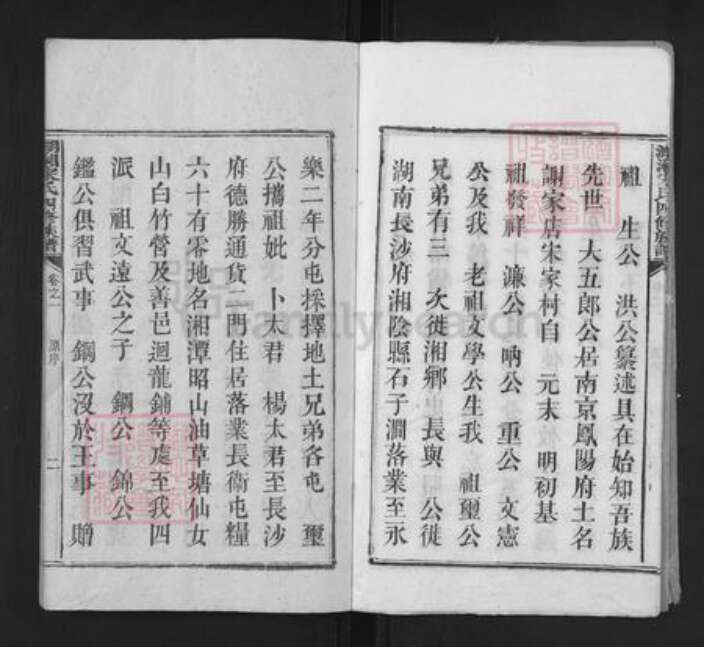 祖 生公 洪公纂述具在始知吾族
先世 大五郎公居南京鳳陽府土名
謝家店宋家村自 元末 明初基
祖發祥 濂公 吶公 重公 文憲
公及我 老祖文學公生我 祖璽公
兄弟有三 次徙湘鄉 長與 公徙
湖南長沙府湘陰縣石子澗落業至永
樂二年分屯採擇地土兄弟各屯 璽
公攜祖妣 卜太君 楊太君至長沙
府德勝通貨二門住居落業長衛屯糧
六十有零地名湘潭昭山油草塘仙女
山白竹營及善邑迴龍鋪等處至我四
派 祖文遠公之子 鋼公 錦公
鑑公俱習武事 鋼公沒於王事 贈
氏四修族譜 卷之一 原序 二
氏四修族譜
FamilySearch